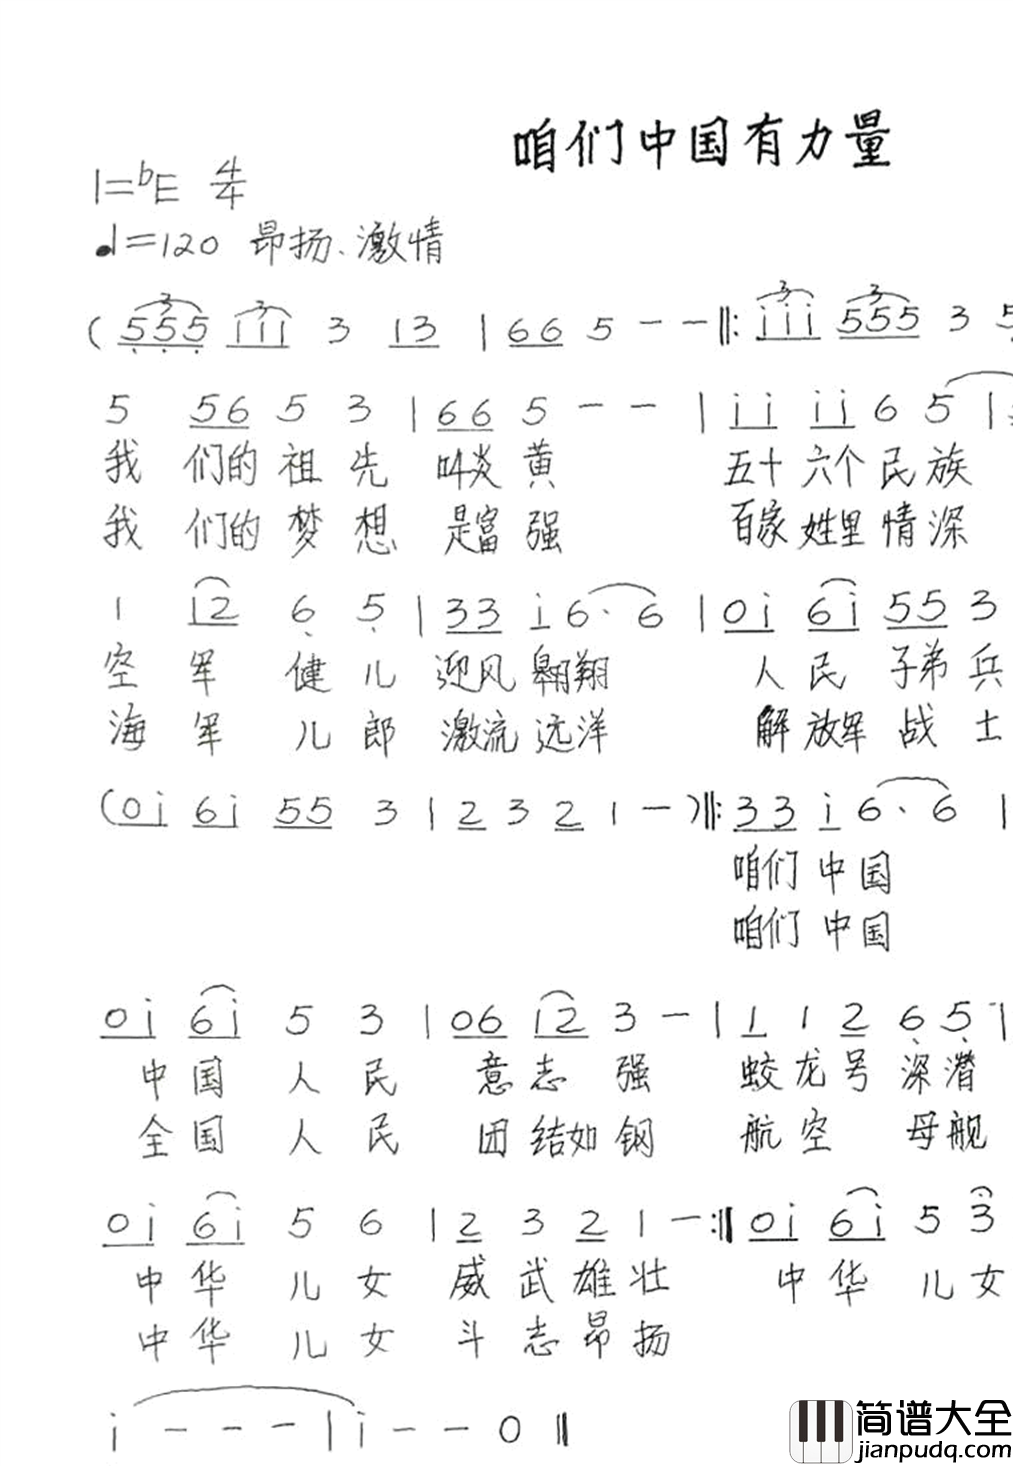 咱们中国有力量
1=♭E 4/4
♩=120 昂扬、激情
( 555 iii 3 13 | 66 5 - - ‖: iii 555 3 5
5 56 5 3 | 66 5 - - | ii ii 6 5 |
我 们的 祖 先 叫炎 黄 五十 六个 民 族
我 们的 梦 想 是富 强 百家 姓里 情 深
1 12 6 5 | 33 i 6· 6 | 0i 6i 55 3
空 军 健 儿 迎风 翱翔 人 民 子弟 兵
海 军 儿 郎 激流 远洋 解 放军 战 士
(0i 6i 55 3 | 2 3 2 1 -)‖: 33 i 6· 6 |
咱们 中 国
咱们 中 国
0i 6i 5 3 | 06 i2 3 - | 1 1 2 6 5 |
中 国 人 民 意 志 强 蛟 龙 号 深 潜
全 国 人 民 团 结如 钢 航 空 母 舰
0i 6i 5 6 | 2 3 2 1 - :‖ 0i 6i 5 3
中 华 儿 女 威 武 雄 壮 中 华 儿 女
中 华 儿 女 斗 志 昂 扬
i - - - | i - - 0 ‖
简谱大全
jianpudq.com